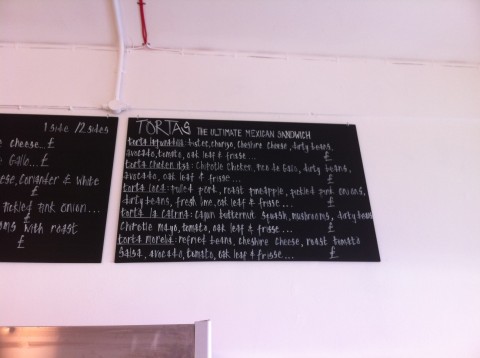 1 side / 2 sides
e cheese...£
e Gallo...£
eese, Coriander & White
£
Pickled Pink onion...
£
ans with roast
£
TORTAS THE ULTIMATE MEXICAN SANDWICH
chorizo, cheshire cheese, dirty beans,
avocado, tomato, oak leaf & frisse... £
Chipotle Chicken, Pico de Gallo, dirty beans,
avocado, oak leaf & frisse... £
torta loca: Pulled Pork, roast pineapple, pickled pink onions,
dirty beans, fresh lime, oak leaf & frisse... £
torta la Catrina: Cajun butternut squash, mushrooms, dirty beans
Chipotle mayo, tomato, oak leaf & frisse... £
torta morelia: refried beans, cheshire cheese, roast tomato
salsa, avocado, tomato, oak leaf & frisse... £